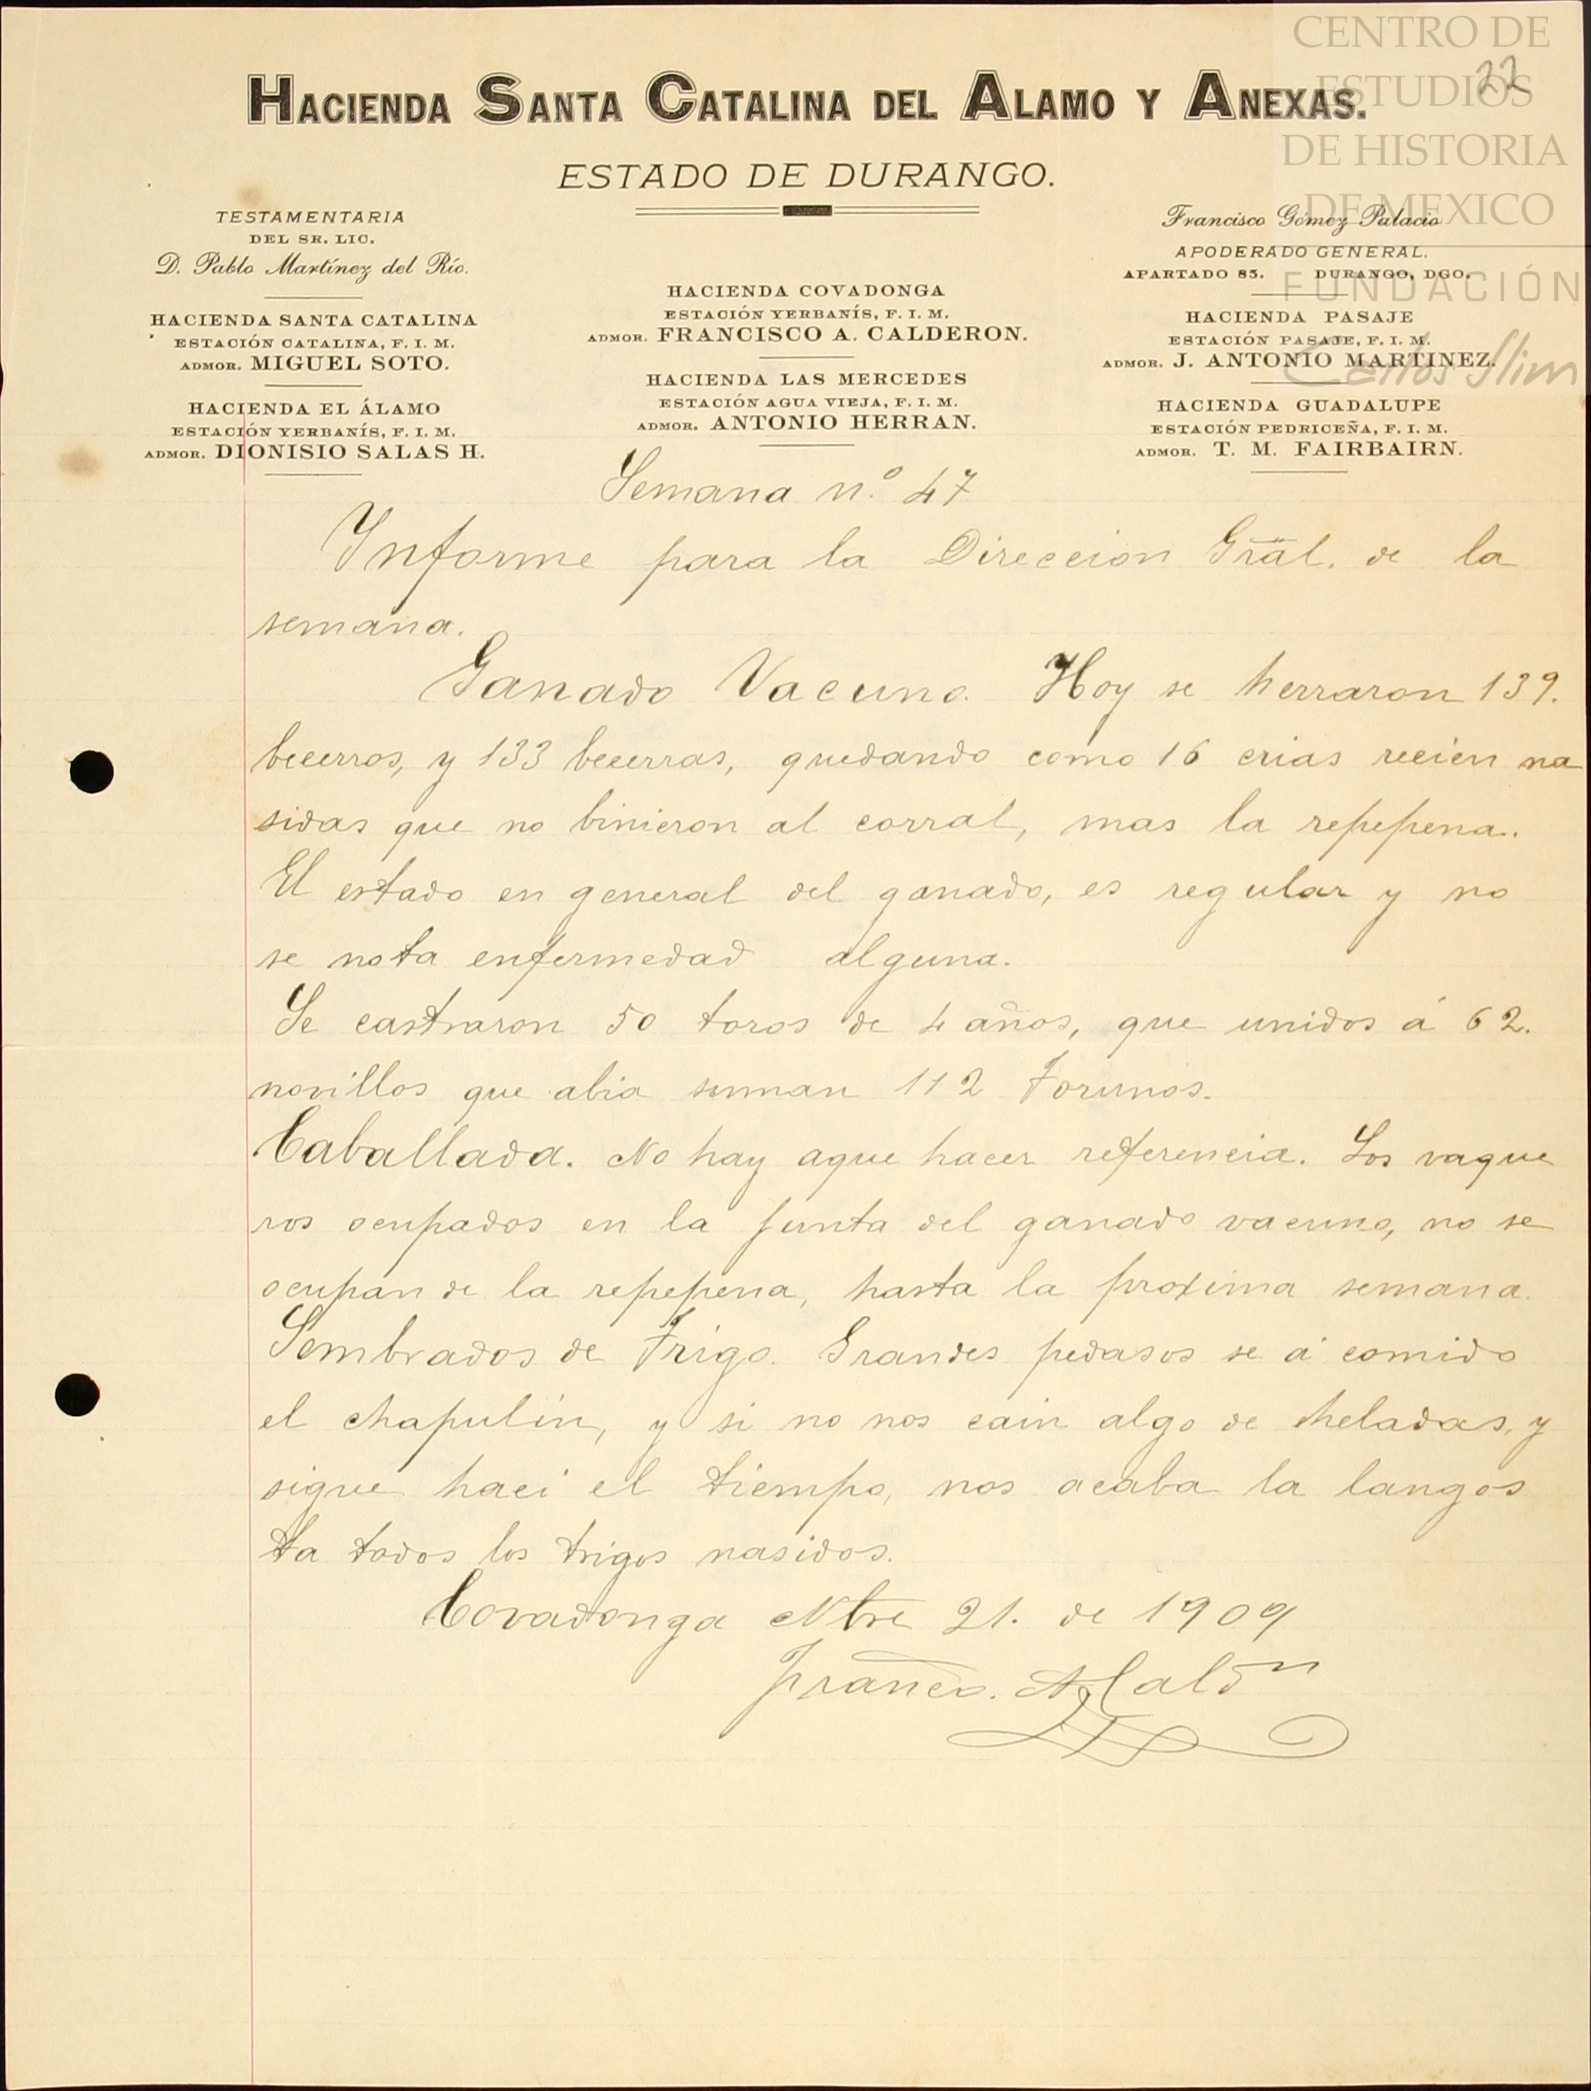 CENTRO DE
ESTUDIOS
DE HISTORIA
DE MEXICO
FUNDACIÓN
Carlos Slim
22
HACIENDA SANTA CATALINA DEL ALAMO Y ANEXAS.
ESTADO DE DURANGO.
TESTAMENTARIA
DEL SR. LIC.
D. Pablo Martínez del Río.
HACIENDA SANTA CATALINA
ESTACIÓN CATALINA, F. I. M.
ADMOR. MIGUEL SOTO.
HACIENDA EL ÁLAMO
ESTACIÓN YERBANÍS, F. I. M.
ADMOR. DIONISIO SALAS H.
HACIENDA COVADONGA
ESTACIÓN YERBANÍS, F. I. M.
ADMOR. FRANCISCO A. CALDERON.
HACIENDA LAS MERCEDES
ESTACIÓN AGUA VIEJA, F. I. M.
ADMOR. ANTONIO HERRAN.
Francisco Gómez Palacio
APODERADO GENERAL.
APARTADO 85. DURANGO, DGO.
HACIENDA PASAJE
ESTACIÓN PASAJE, F. I. M.
ADMOR. J. ANTONIO MARTINEZ.
HACIENDA GUADALUPE
ESTACIÓN PEDRICEÑA, F. I. M.
ADMOR. T. M. FAIRBAIRN.
Semana n.º 47
Informe para la Direccion Gral. de la
semana.
Ganado Vacuno. Hoy se herraron 139.
becerros, y 133 becerras, quedando como 16 crias recien na
sidas que no binieron al corral, mas la repepena.
El estado en general del ganado, es regular y no
se nota enfermedad alguna.
Se castraron 50 toros de 4 años, que unidos á 62.
novillos que abia suman 112 Torunos.
Caballada. No hay aque hacer referencia. Los vaque
ros ocupados en la junta del ganado vacuno, no se
ocupan de la repepena, hasta la proxima semana.
Sembrados de Trigo. Grandes pedasos se á comido
el chapulin, y si no nos cain algo de heladas, y
sigue haci el tiempo, nos acaba la langos
ta todos los trigos nasidos.
Covadonga Nbre 21. de 1909
Franco. A Caldn